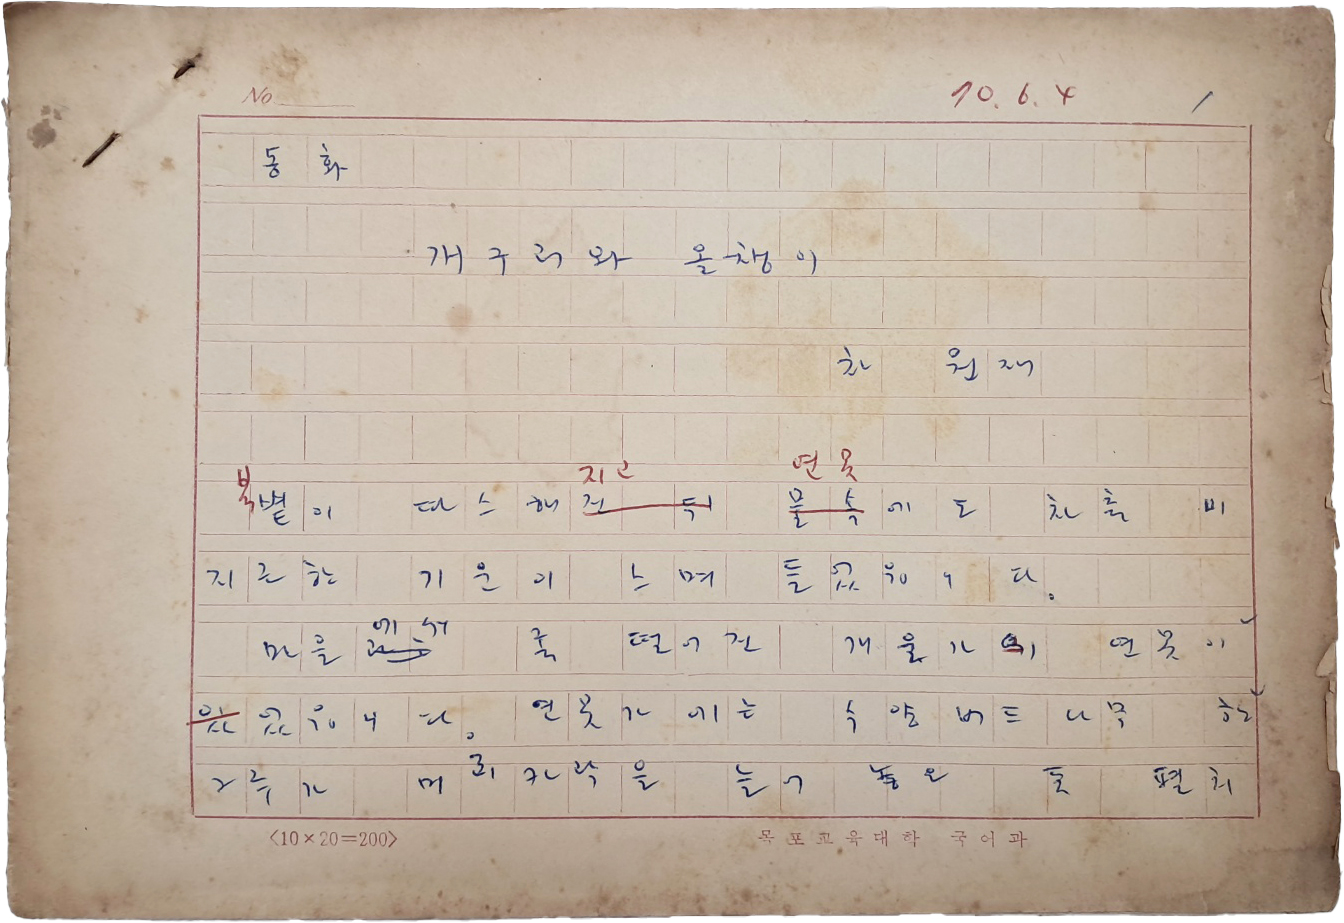 No
70. 6. 4 1
동화
개구리와 올챙이
차 원재
봄 지고 연못
볕이 따스해진 뒤 물 속에도 차츰 미
지근한 기운이 스며 들었읍니다.
에서
마을과 좀 떨어진 개울가에 연못이
있었읍니다. 연못가에는 수양버드나무 한
그루가 머리카락을 늘어 놓은 듯 펼쳐
<10×20=200> 목포교육대학 국어과